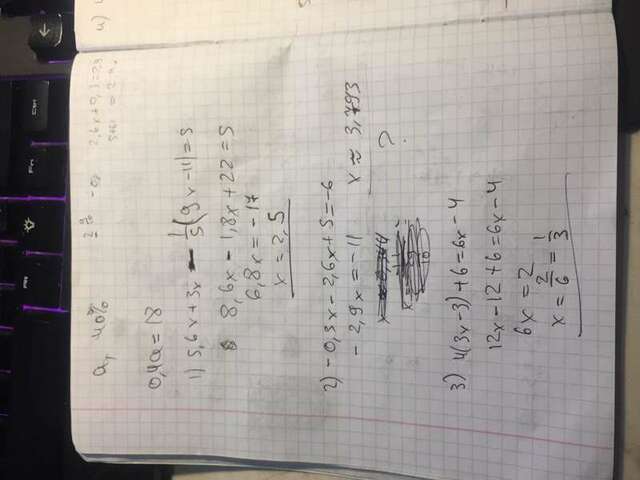 a, 40%
0,4a = 18
1) 5,6x + 3x - 1/5(9x - 11) = 5
8,6x - 1,8x + 22 = 5
6,8x = -17
x = 2,5
2) -0,3x - 2,6x + 5 = -6
-2,9x = -11
x ≈ 3,793
?
3) 4(3x - 3) + 6 = 6x - 4
12x - 12 + 6 = 6x - 4
6x = 2
x = 2/6 = 1/3